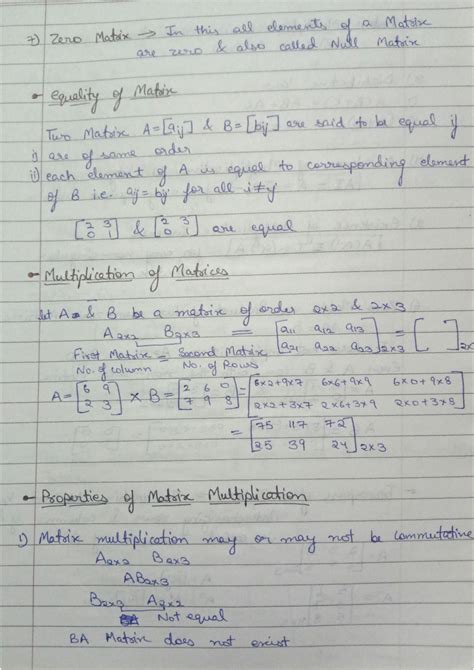 7) Zero Matrix → In this all elements of a Matrix
are zero & also called Null Matrix
• Equality of Matrix
Two Matrix A=[aij] & B=[bij] are said to be equal if
i) are of same order
ii) each element of A is equal to corresponding element
of B i.e. aij = bij for all i≠y
[2 3 & [2 3 are equal
0 1] 0 1]
• Multiplication of Matrices
let A & B be a matrix of order 2x2 & 2x3
A2x2 B2x3 = [a11 a12 a13 = [ ]2x
a21 a22 a23]2x3
First Matrix = Second Matrix
No. of column No. of Rows
A = [6 9 × B = [2 6 0 = [6x2+9x7 6x6+9x9 6x0+9x8
2 3] 7 9 8] 2x2+3x7 2x6+3x9 2x0+3x8]
= [75 117 72
25 39 24]2x3
• Properties of Matrix Multiplication
1) Matrix multiplication may or may not be commutative
A2x2 B2x3
AB2x3
B2x3 A2x2
Not equal
BA Matrix does not exist